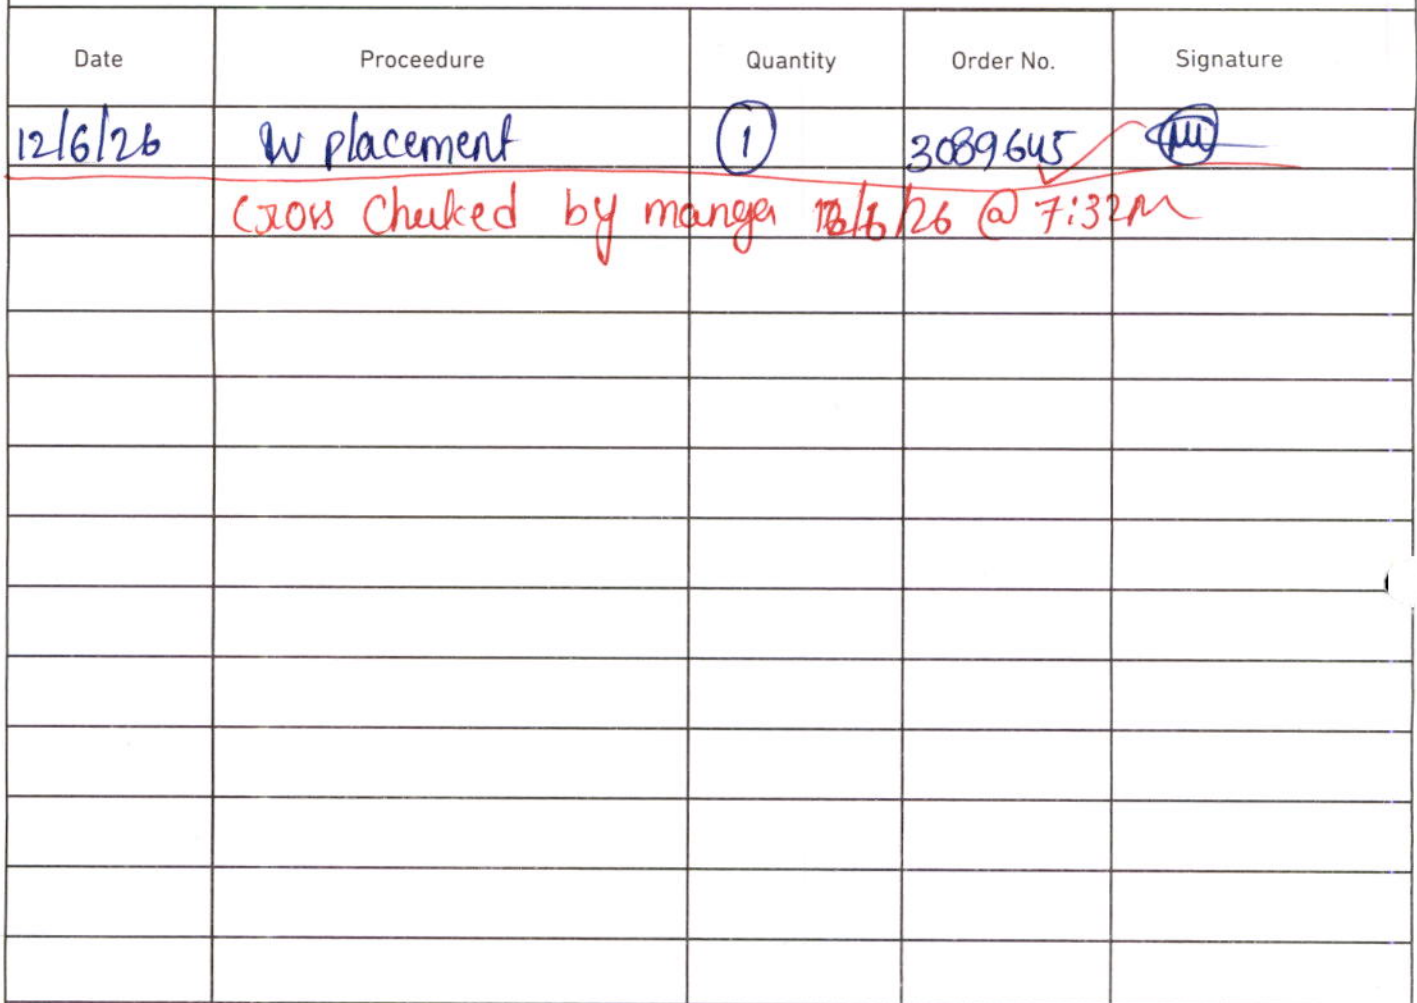 Date Proceedure Quantity Order No. Signature
12/6/26 IV placement 1 3089645
Cross Checked by manger /6/26 @ 7:32PM